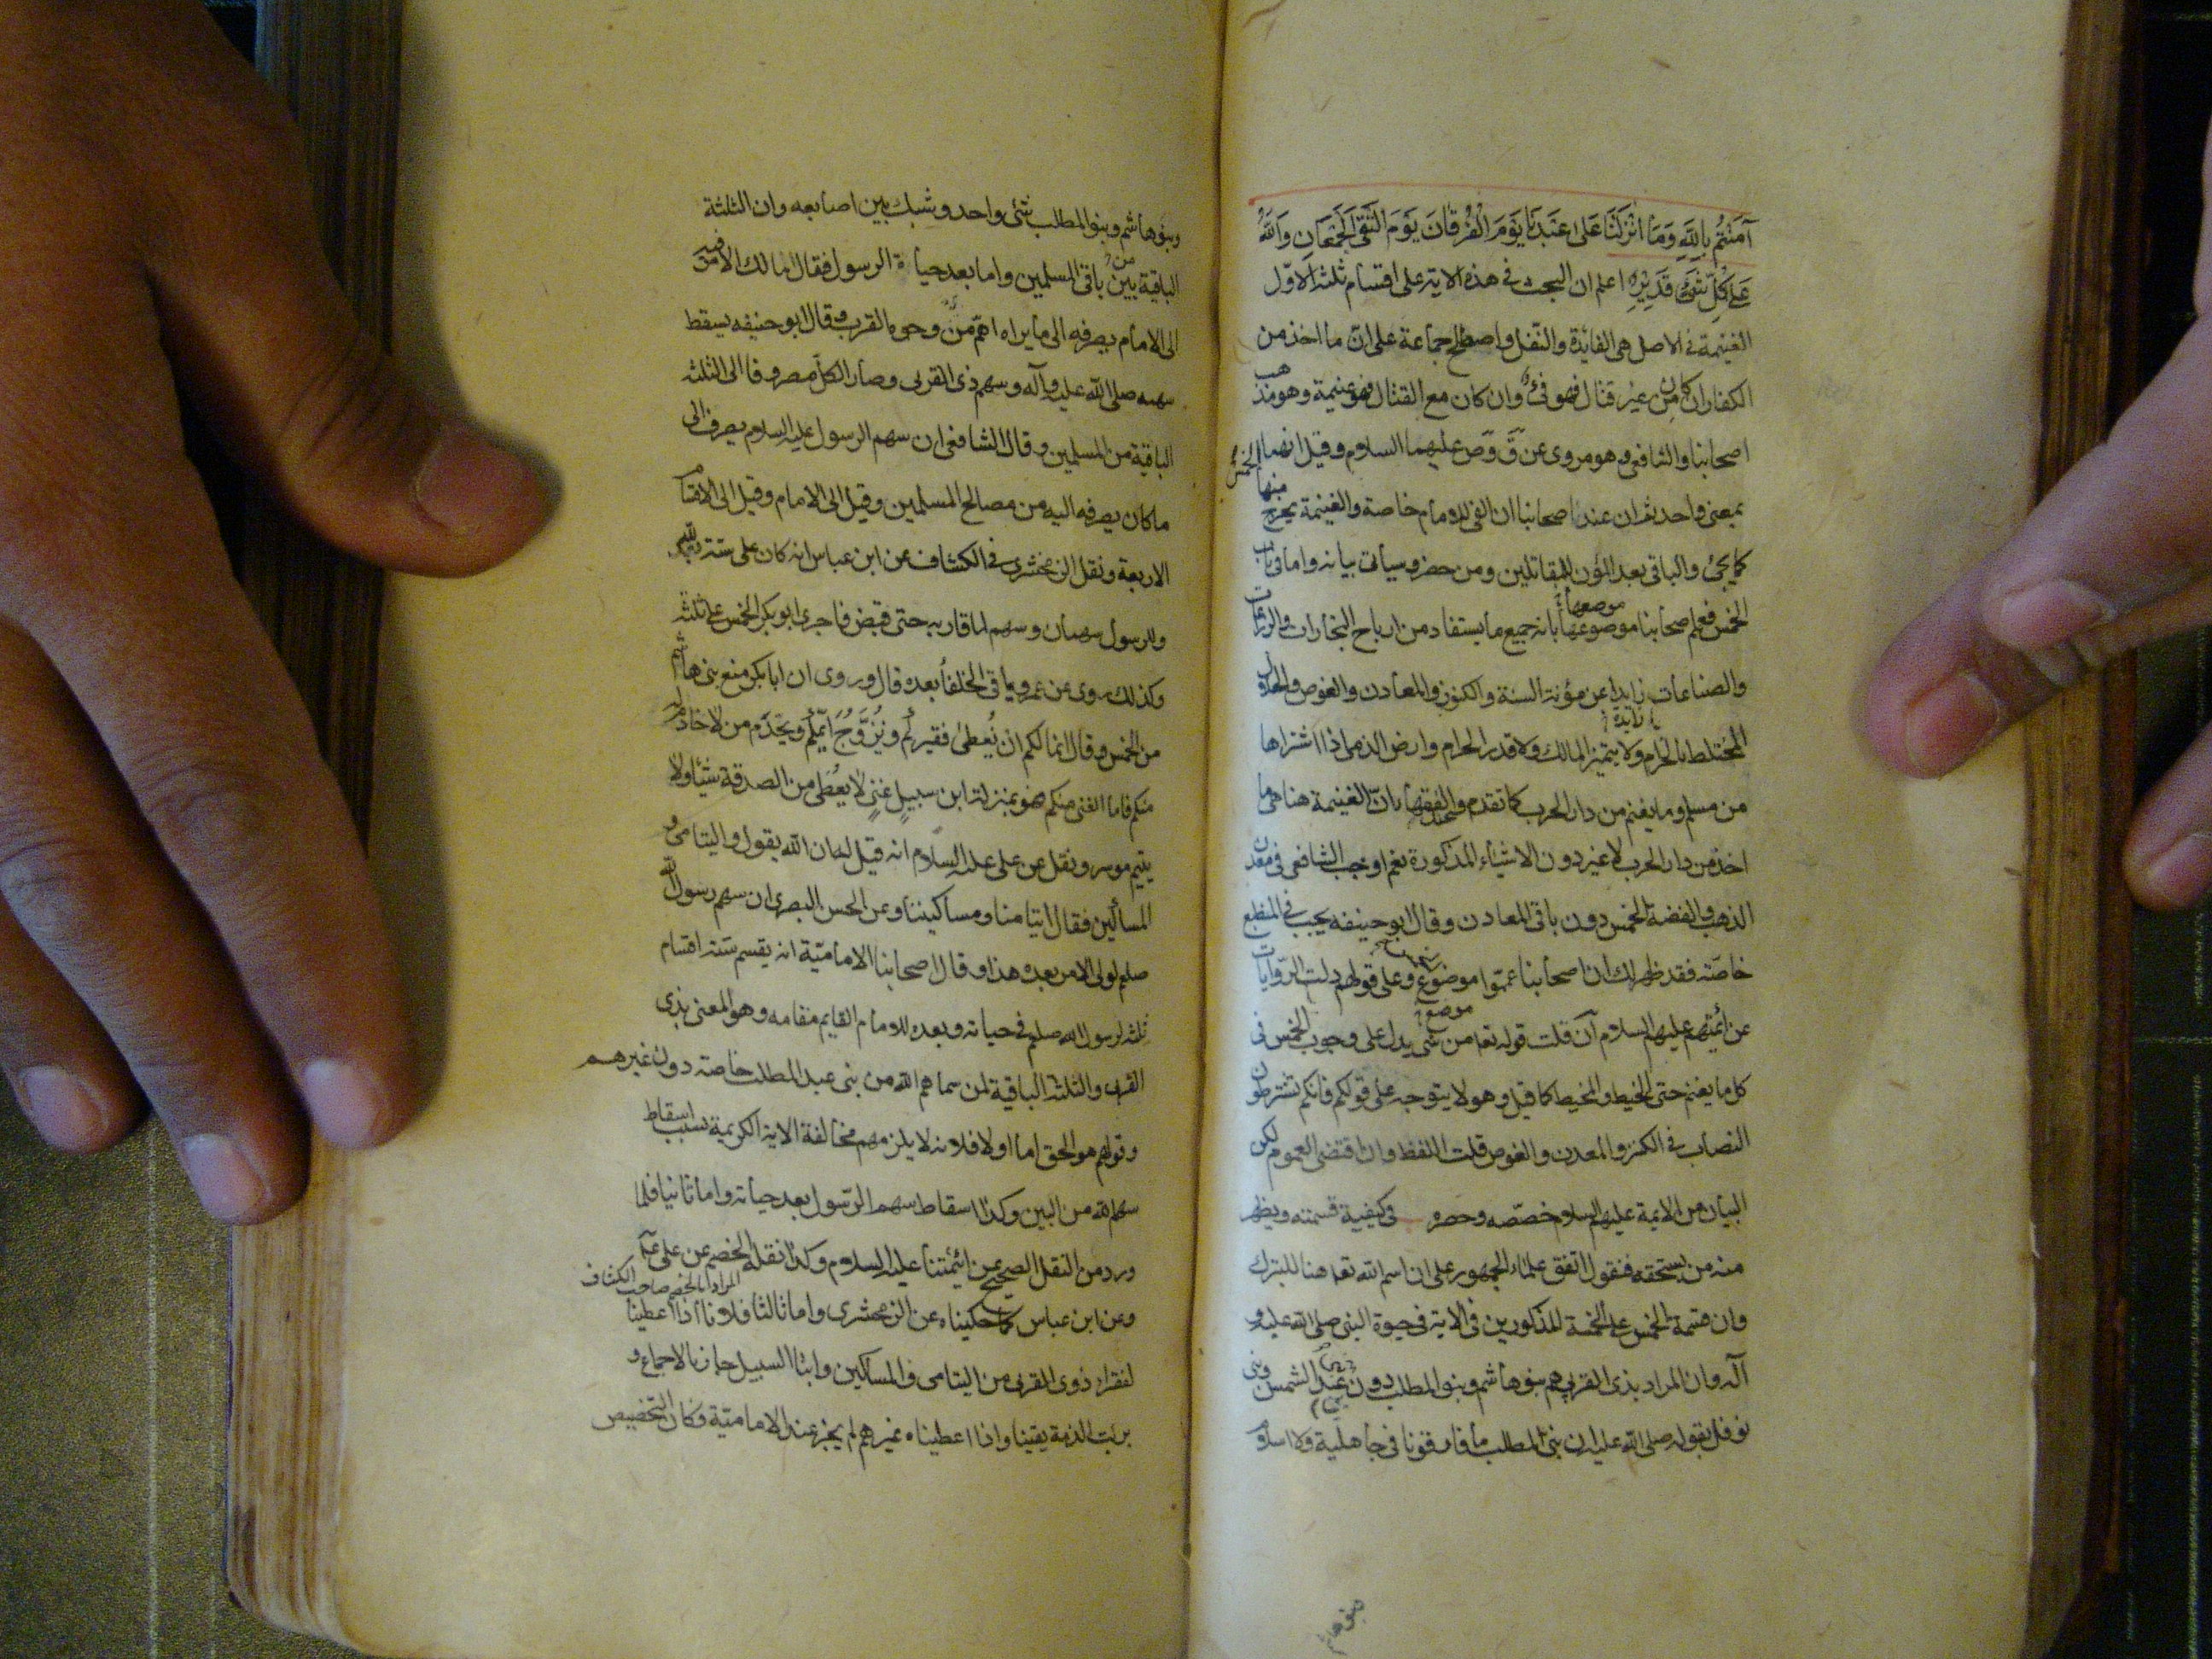 آمَنْتُمْ بِاللهِ وَمَا اَنْزَلْنَا عَلٰى عَبْدِنَا يَوْمَ الْفُرْقَانَ يَوْمَ الْتَقَى الْجَمْعَانِ وَاللهُ
عَلٰى كُلِّ شَيْءٍ قَدِيْرٌ اعلم ان البحث فى هذه الاية على اقسام ثلثة الاوّل
الغنيمة فى الاصل هى الفائدة والنّفل واصطلح جماعة على انّ ما اخذ من
الكفار ان كان من غير قتال فهو فئ وان كان مع القتال فهو غنيمة وهو مذهب
اصحابنا والشافعى وهو مروى عن ق وص عليهما السلام وقيل انهما
بمعنى واحد ثم ان عند اصحابنا ان الفئ للامام خاصة والغنيمة يخرج منها الخمس
كما يجئ والباقى بعد المؤن للمقاتلين ومن حضر وسيأتى بيانه واما فى باب
الخمس فعمم اصحابنا موضوعها بانه جميع ما يستفاد من ارباح التجارات والزراعات
موضعها
والصناعات زايدا عن مؤنة السنة والكنوز والمعادن والغوص والحلال
زايدة
المختلط بالحرام ولا يتميز المالك ولا قدر الحرام وارض الذمى اذا اشتراها
من مسلم وما يغنم من دار الحرب كما تقدم والفقهاء بانّ الغنيمة هنا هى ما
اخذ من دار الحرب لا غير دون الاشياء المذكورة نعم اوجب الشافعى فى معدن
الذهب والفضة الخمس دون باقى المعادن وقال ابو حنيفه يجب فى المنطبع
خاصّة فقد ظهر لك ان اصحابنا عمّوا موضوع وعلى قولهم دلت الرّوايات
موضع
عن ائمتهم عليهم السلام ان قلت قوله تعه من شئ يدل على وجوب الخمس فى
كل ما يغنم حتى الخيط والمخيط كما قيل وهو لا يتوجه على قولكم فانكم تشترطون
النصاب فى الكنز والمعدن والغوص قلت اللفظ وان اقتضى العموم لكن
البيان من الايمة عليهم السلم خصّصه وحصره فى كيفية قسمته ويظهر
منه من يستحقه فنقول اتفق علماء الجمهور على ان اسم الله تعه هنا للتبرك
وان قسمة الخمس على الخمسة المذكورين فى الاية فى حيوة النبى صلى الله عليه و
آله وان المراد بذى القربى هم بنو هاشم وبنو المطلب دون عبد الشمس وبنى
نوفل بقوله صلى الله عليه ان بنى المطلب ما فارقونا فى جاهلية ولا اسلام
وبنو هاشم وبنو المطلب شئ واحد وشبك بين اصابعه وان الثلثة
الباقية بين باقى المسلمين واما بعد حياة الرسول فقال مالك الامر فيه
من
الى الامام يصرفه الى ما يراه اهمّ من وجوه القرب وقال ابو حنيفه يسقط
سهمه صلى الله عليه وآله وسهم ذى القربى وصار الكلّ مصروفا الى الثلثة
الباقية من المسلمين وقال الشافعى ان سهم الرسول عليه السلام يصرف الى
ما كان يصرفه اليه من مصالح المسلمين وقيل الى الامام وقيل الى الاقسام
الاربعة ونقل الزمخشرى فى الكشاف عن ابن عباس انه كان على ستة لله
وللرسول سهمان وسهم لاقاربه حتى قبض فاجرى ابو بكر الخمس على ثلثة
وكذلك روى عن عمر وباقى الخلفأ بعده قال وروى ان ابا بكر منع بنى هاشم
من الخمس وقال انما لكم ان نُعطى فقيركم ونُزَوِّجُ ايّمكم ويخدم من لا خادم له
منكم فاما الغنى منكم هو بمنزلة ابن سبيلٍ غنىٍ لا يُعْطَى من الصدقة شيئا ولا
يتيم موسر ونقل عن على عليه السلام انه قيل له ان الله يقول واليتامى و
المسأكين فقال ايتامنا ومساكيننا وعن الحسن البصرى ان سهم رسول الله
صلعم لولى الامر بعده هذا وقال اصحابنا الاماميّة انه يقسم ستة اقسام
ثلثه لرسول الله صلعم فى حياته وبعده للامام القايم مقامه وهو المعنى بذى
القربى والثلثة الباقية لمن سماهم الله من بنى عبد المطلب خاصة دون غيرهم
وقولهم هو الحق اما اولا فلانه لا يلزمهم مخالفة الاية الكريمة بسبب اسقاط
سهم الله من البين وكذا اسقاط سهم الرّسول بعد حياته واما ثانيا فلما
ورد من النقل الصحيح عن ائمتنا عليه السلام وكذا نقله الخصم عن على
المراد بالخصم صاحب الكشاف
وعن ابن عباس كما حكيناه عن الزمخشرى واما ثالثا فلانا اذا اعطينا
لفقراء ذوى القربى من اليتامى والمساكين وابنا السبيل جاز بالاجماع و
برئت الذمة يقينا واذا اعطيناه غيرهم لم يجز عند الاماميّة فكان التخصيص
بنو هاشم